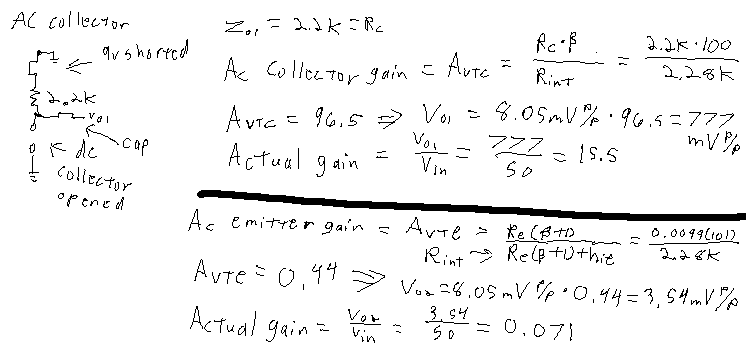 AC collector
9v shorted
2.2K
Vo1
cap
dc
collector
opened
Zo1 = 2.2K = Rc
Ac Collector gain = Avtc = Rc·β / Rint = 2.2K·100 / 2.28K
Avtc = 96.5 ⇒ Vo1 = 8.05mV P/P · 96.5 = 777 mV P/P
Actual gain = Vo1 / Vin = 777 / 50 = 15.5
Ac emitter gain = Avte = Re(β+1) / Re(β+1)+hie = 0.0099(101) / 2.28K
Rint →
Avte = 0.44 ⇒ Vo2 = 8.05mV P/P · 0.44 = 3.54mV P/P
Actual gain = Vo2 / Vin = 3.54 / 50 = 0.071